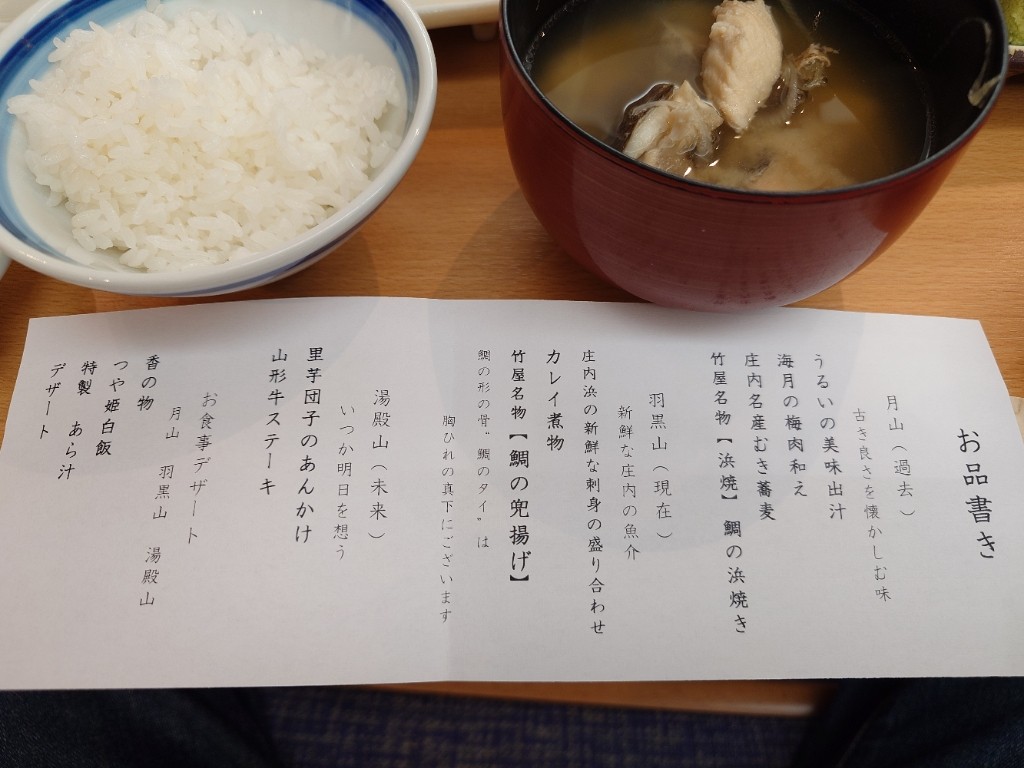 お品書き
月山（過去）
古き良さを懐かしむ味
うるいの美味出汁
海月の梅肉和え
庄内名産むき蕎麦
竹屋名物【浜焼】 鯛の浜焼き
羽黒山（現在）
新鮮な庄内の魚介
庄内浜の新鮮な刺身の盛り合わせ
カレイ煮物
竹屋名物【鯛の兜揚げ】
鯛の形の骨“鯛のタイ”は
胸ひれの真下にございます
湯殿山（未来）
いつか明日を想う
里芋団子のあんかけ
山形牛ステーキ
お食事デザート
月山 羽黒山 湯殿山
香の物
つや姫白飯
特製 あら汁
デザート